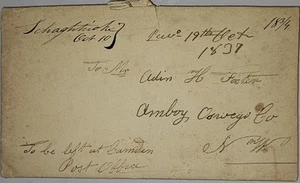 Schaghticoke
Oct 10
18 3/4
Recd 19th Oct
1837
To Mr Adin H Foster
Amboy Oswego Co
N
To be left at Camden
Post Office